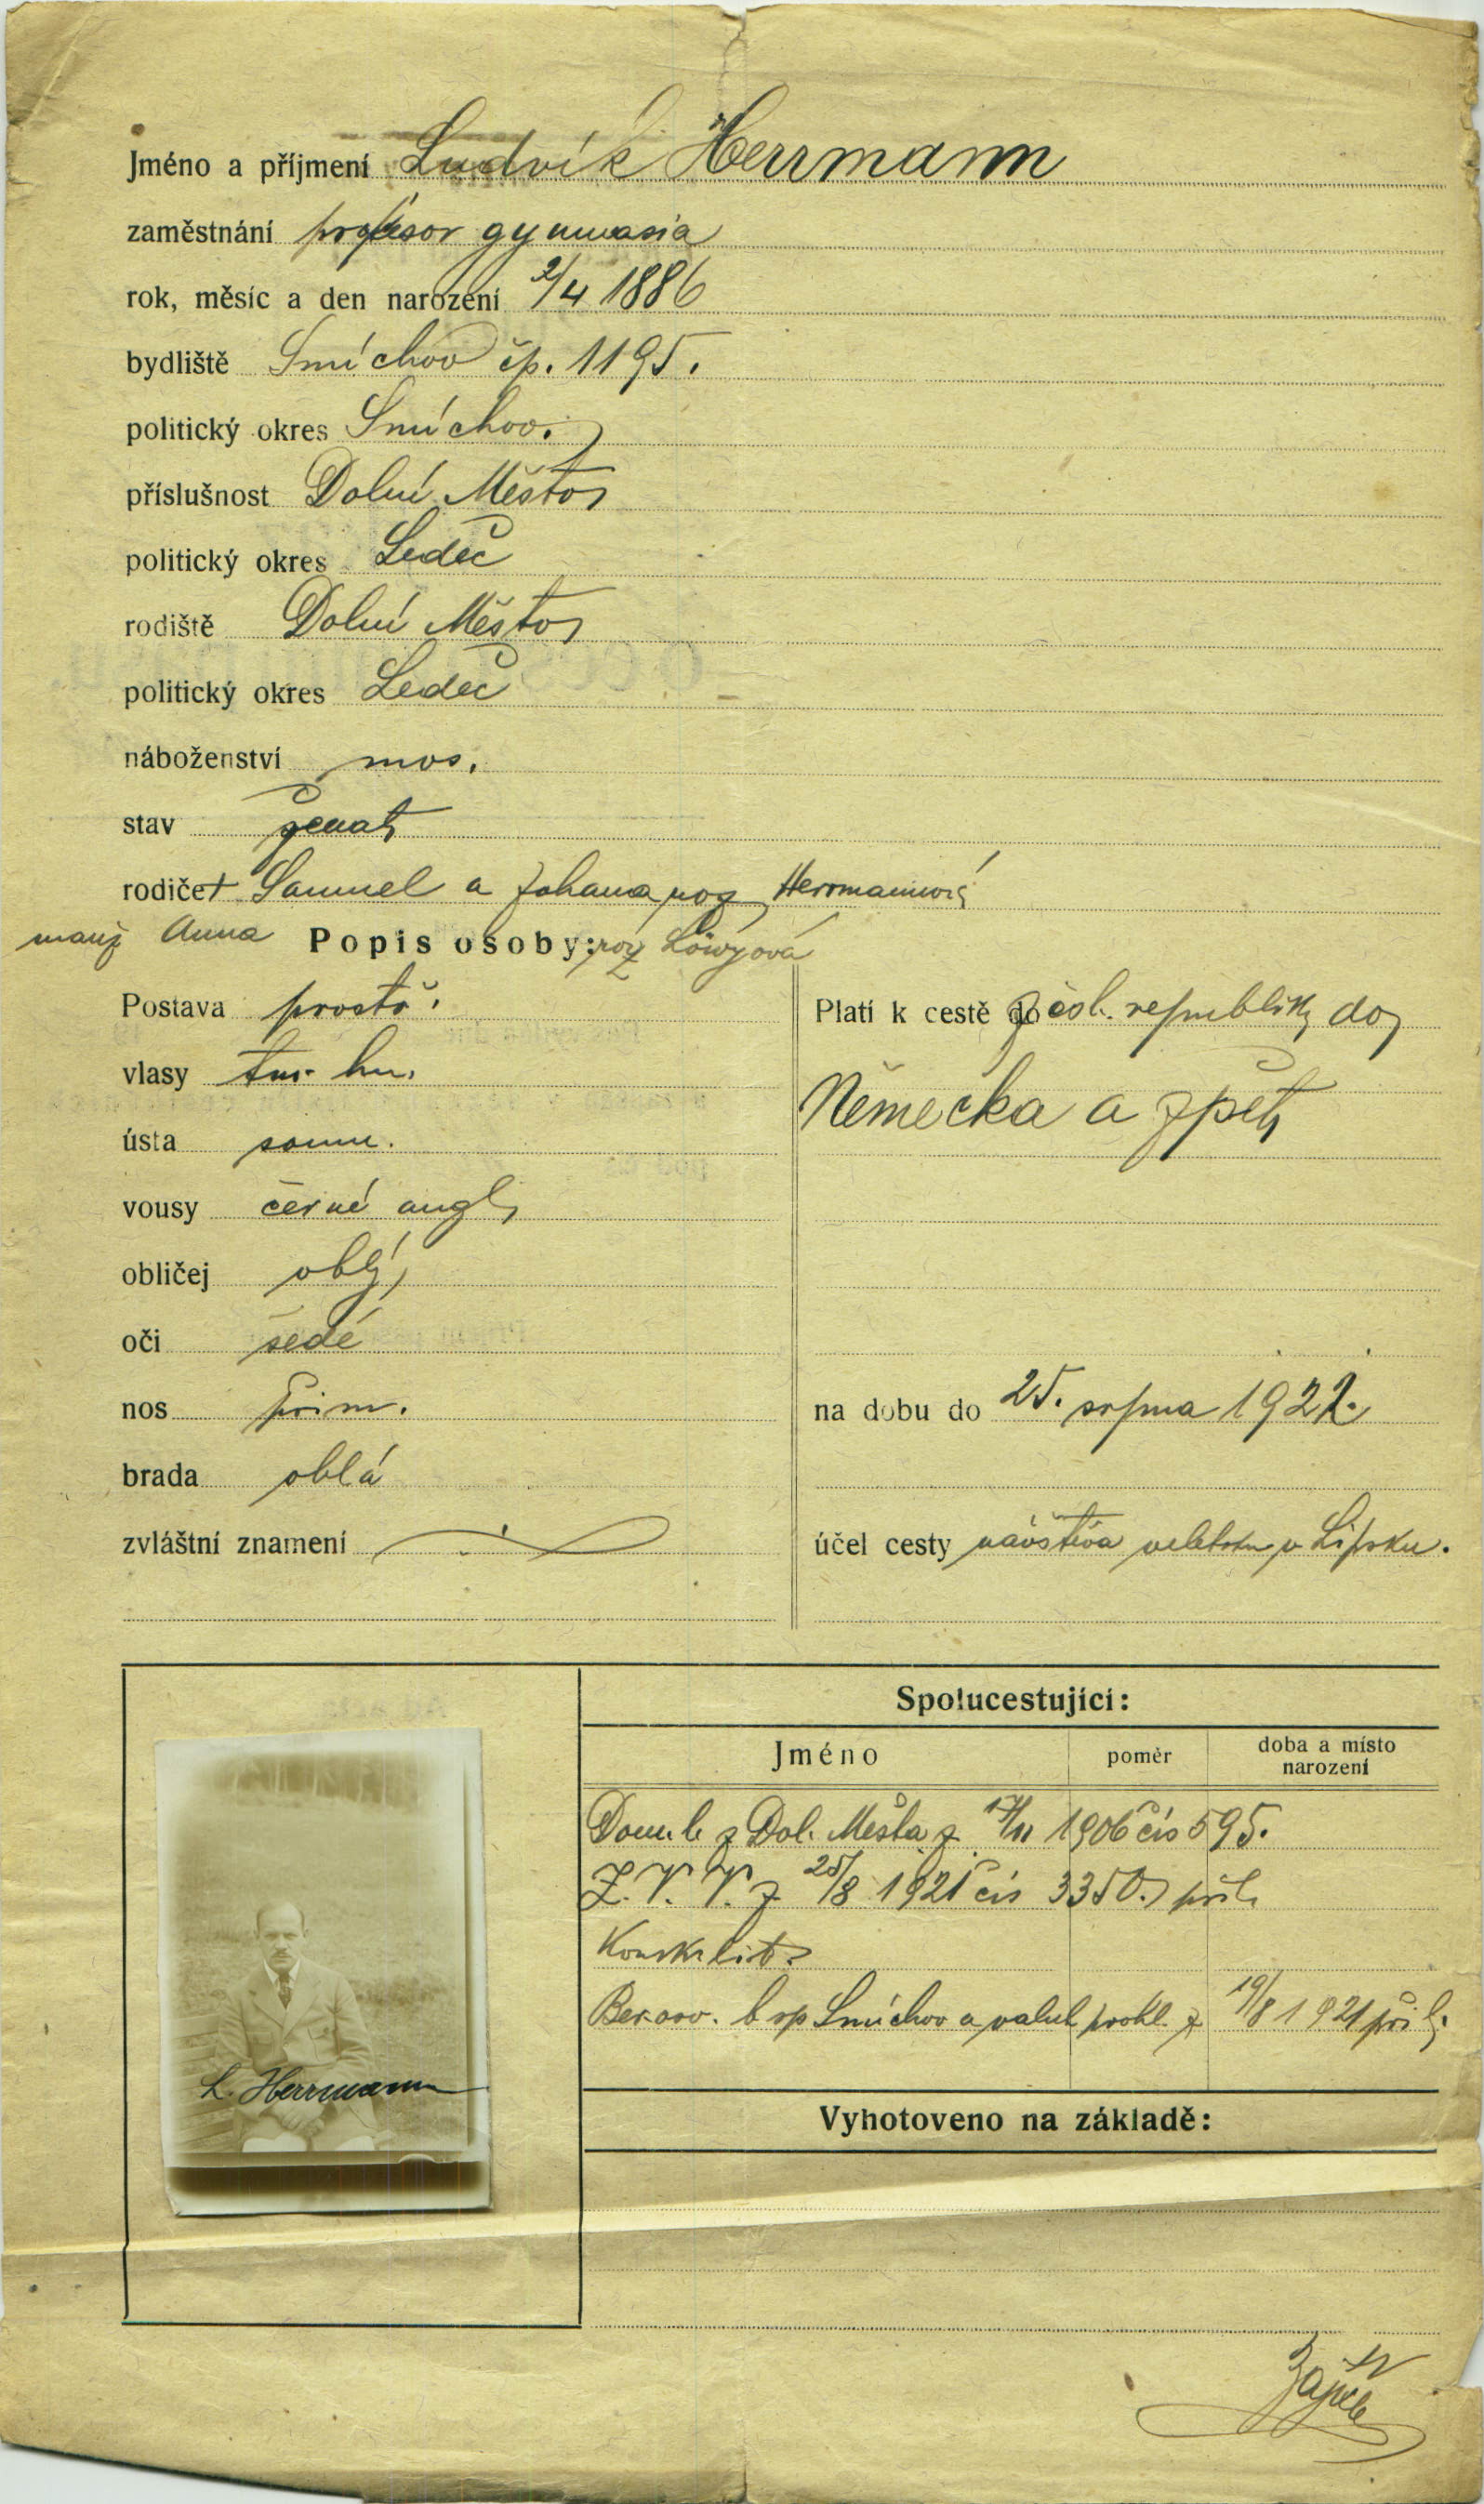 Jméno a příjmení Ludvík Herrmann
zaměstnání profesor gymnasia
rok, měsíc a den narození 2/4 1886
bydliště Smíchov čp. 1195.
politický okres Smíchov.
příslušnost Dolní Město
politický okres Ledeč
rodiště Dolní Město
politický okres Ledeč
náboženství mos.
stav ženat
rodiče Samuel a Johana roz Herrmannová
manž Anna roz Löwyová
Popis osoby:
Postava prostř.
vlasy tm. hn.
ústa soum.
vousy černé angl
obličej oblý
oči šedé
nos přim.
brada oblá
zvláštní znamení
Platí k cestě do z čsl. republiky do
Německa a zpět
na dobu do 25. srpna 1922.
účel cesty návštěva veletrhu v Lipsku.
L. Herrmann
Spolucestující:
Jméno poměr doba a místo narození
Dom. l. z Dol. Města z 1906 čís 595.
Z. V. V. z 25/8 1921 čís 3350. příl.
Konskr. list.
Ber. osv. b sp Smíchov a valut prohl. z 19/8 1921 příl.
Vyhotoveno na základě: